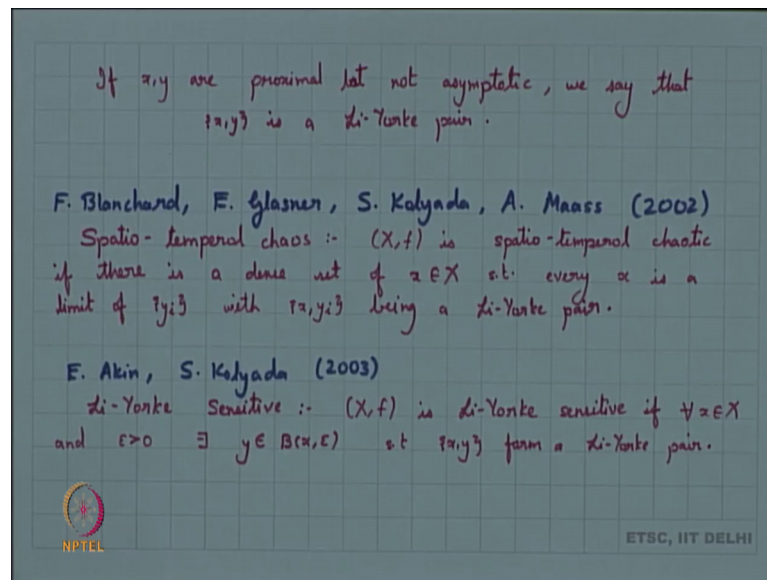 If x,y are proximal but not asymptotic, we say that
{x,y} is a Li-Yorke pair.
F. Blanchard, E. Glasner, S. Kolyada, A. Maass (2002)
Spatio-temperal chaos :- (X,f) is spatio-temporal chaotic
if there is a dense set of x∈X s.t. every x is a
limit of {yi} with {x,yi} being a Li-Yorke pair.
E. Akin, S. Kolyada (2003)
Li-Yorke Sensitive :- (X,f) is Li-Yorke sensitive if ∀x∈X
and ε>0 ∃ y∈ B(x,ε) s.t {x,y} form a Li-Yorke pair.
NPTEL
ETSC, IIT DELHI